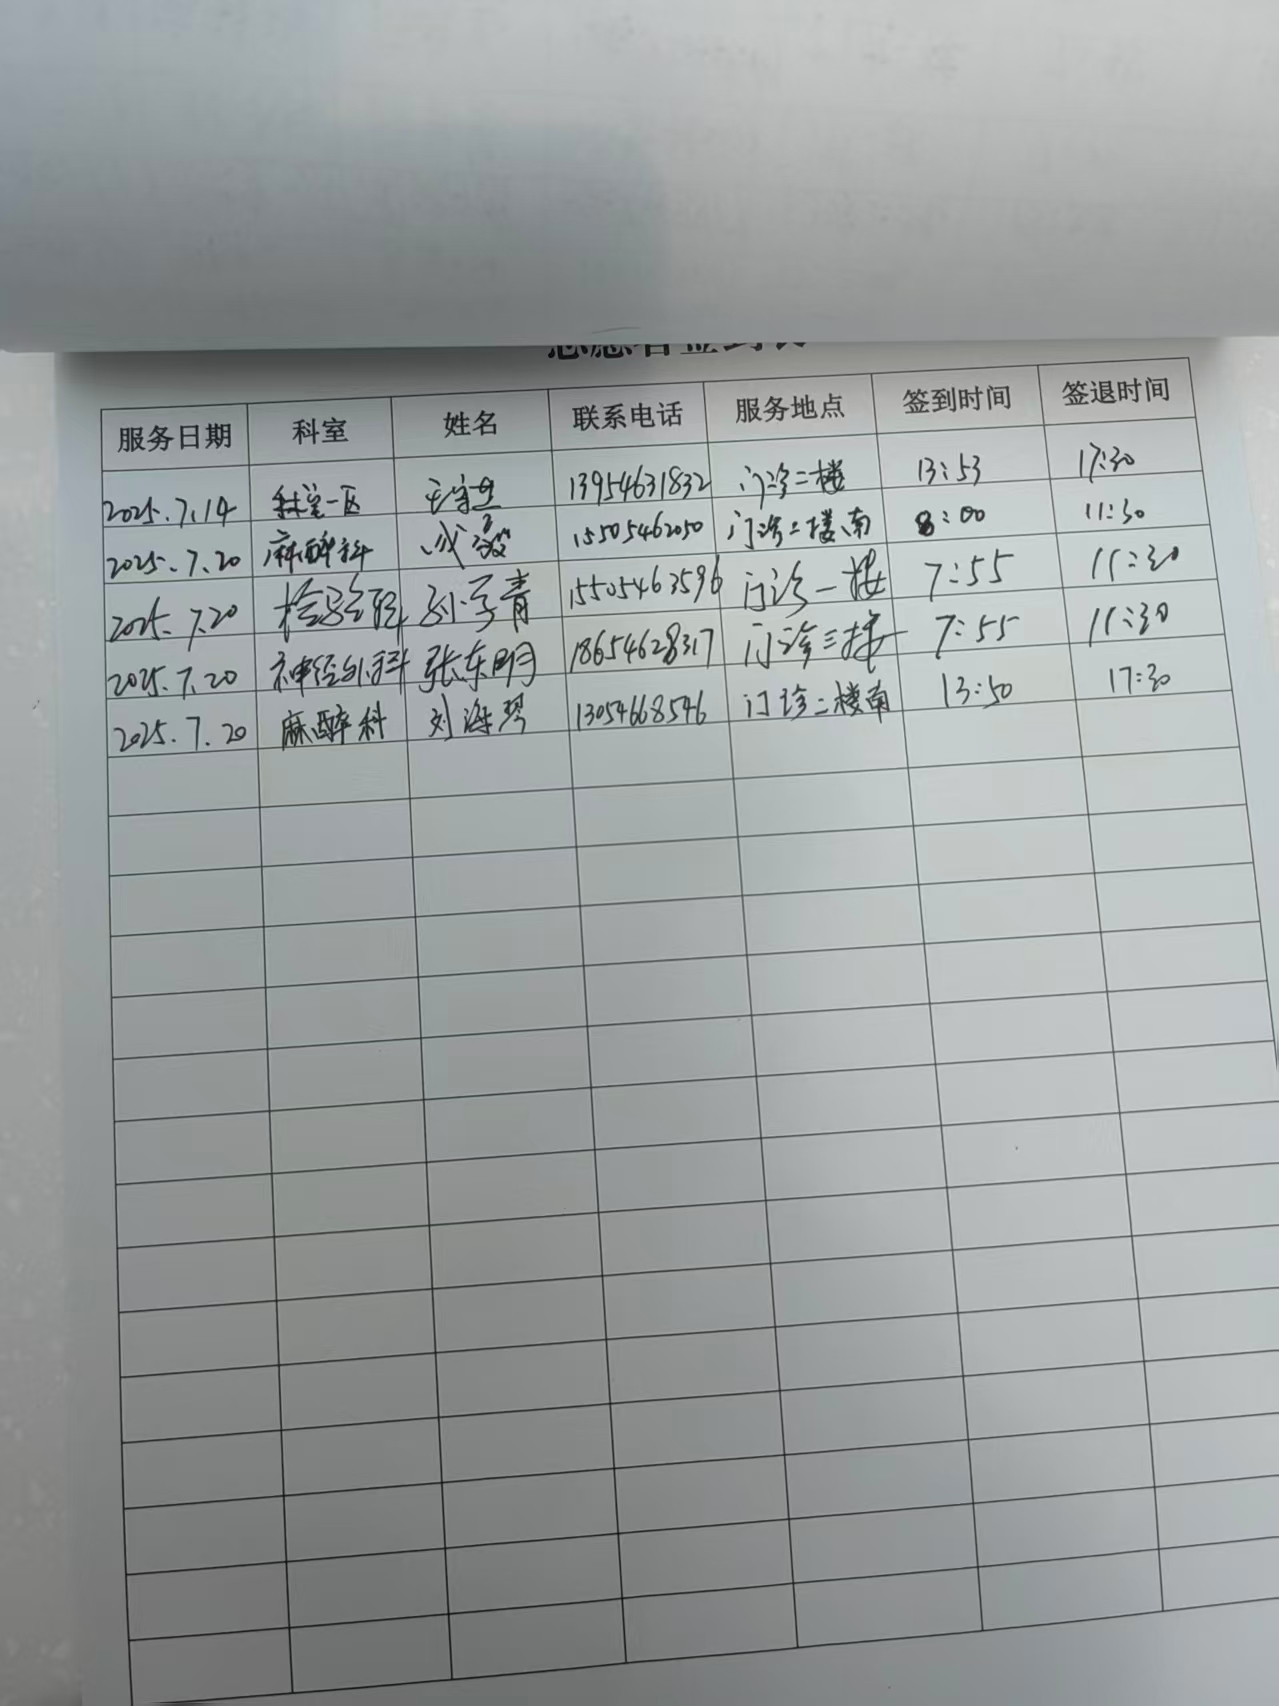 服务日期 科室 姓名 联系电话 服务地点 签到时间 签退时间
2025.7.14 一区 13954631832 门诊二楼 13:53 17:30
2025.7.20 麻醉科 15505462050 门诊二楼南 8:00 11:30
2025.7.20 检验科 孙学青 15505463596 门诊一楼 7:55 11:30
2025.7.20 神经外科 张东明 18654628317 门诊三楼 7:55 11:30
2025.7.20 麻醉科 刘海琴 13054668546 门诊二楼南 13:50 17:30